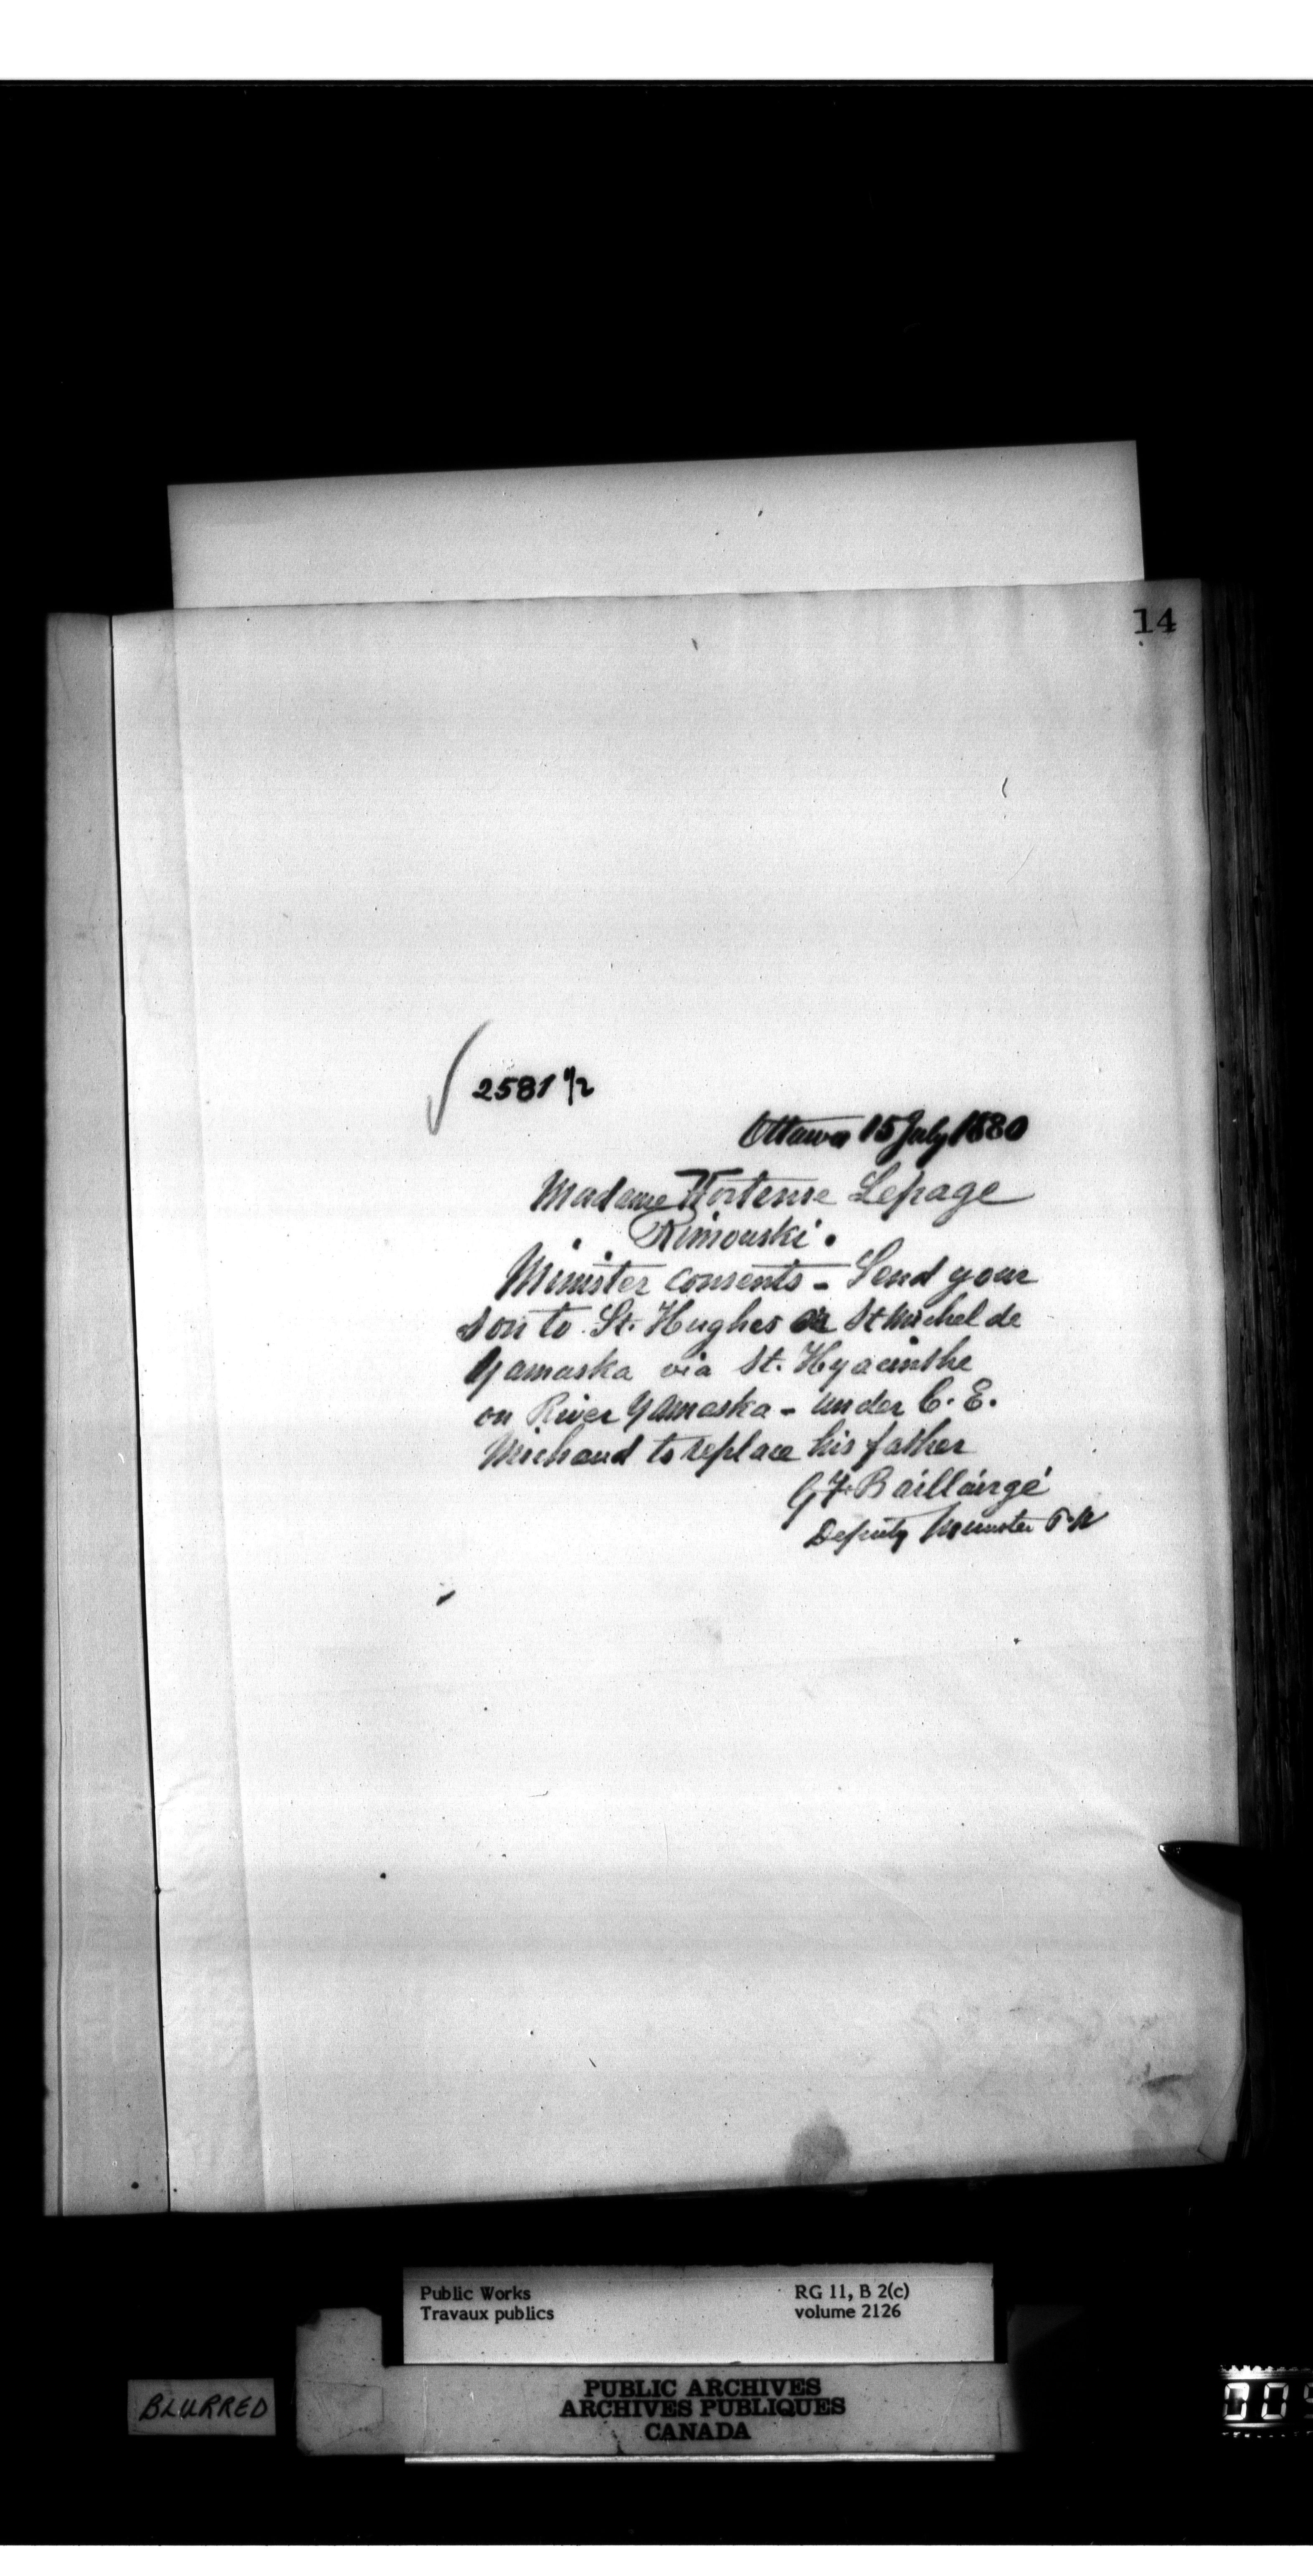 14
2581 1/2
Ottawa 15 July 1880
Madame Hortense Lepage
Rimouski.
Minister consents - Send your
son to St. Hughes or St Michel de
Yamaska via St. Hyacinthe
on River Yamaska - under C. E.
Michaud to replace his father
G F. Baillairgé
Deputy Minister P. W
Public Works
Travaux publics
RG 11, B 2(c)
volume 2126
PUBLIC ARCHIVES
ARCHIVES PUBLIQUES
CANADA
BLURRED